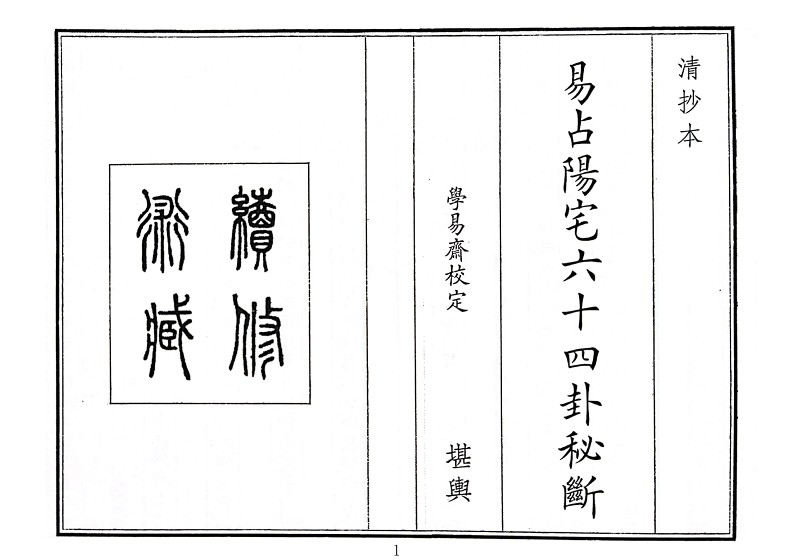 清抄本
易占陽宅六十四卦秘斷
學易齋校定 堪輿
續修
術藏
1